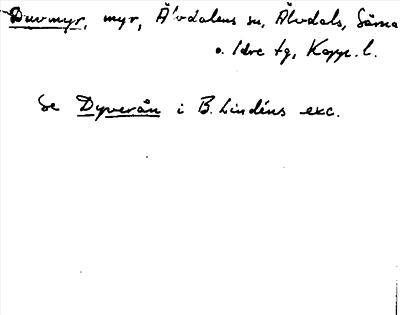 Duvmyr, myr, Älvdalens sn, Älvdals, Särna
o. Idre tg, Kopp. l.
Se Dyverån i B. Lindéns exc.